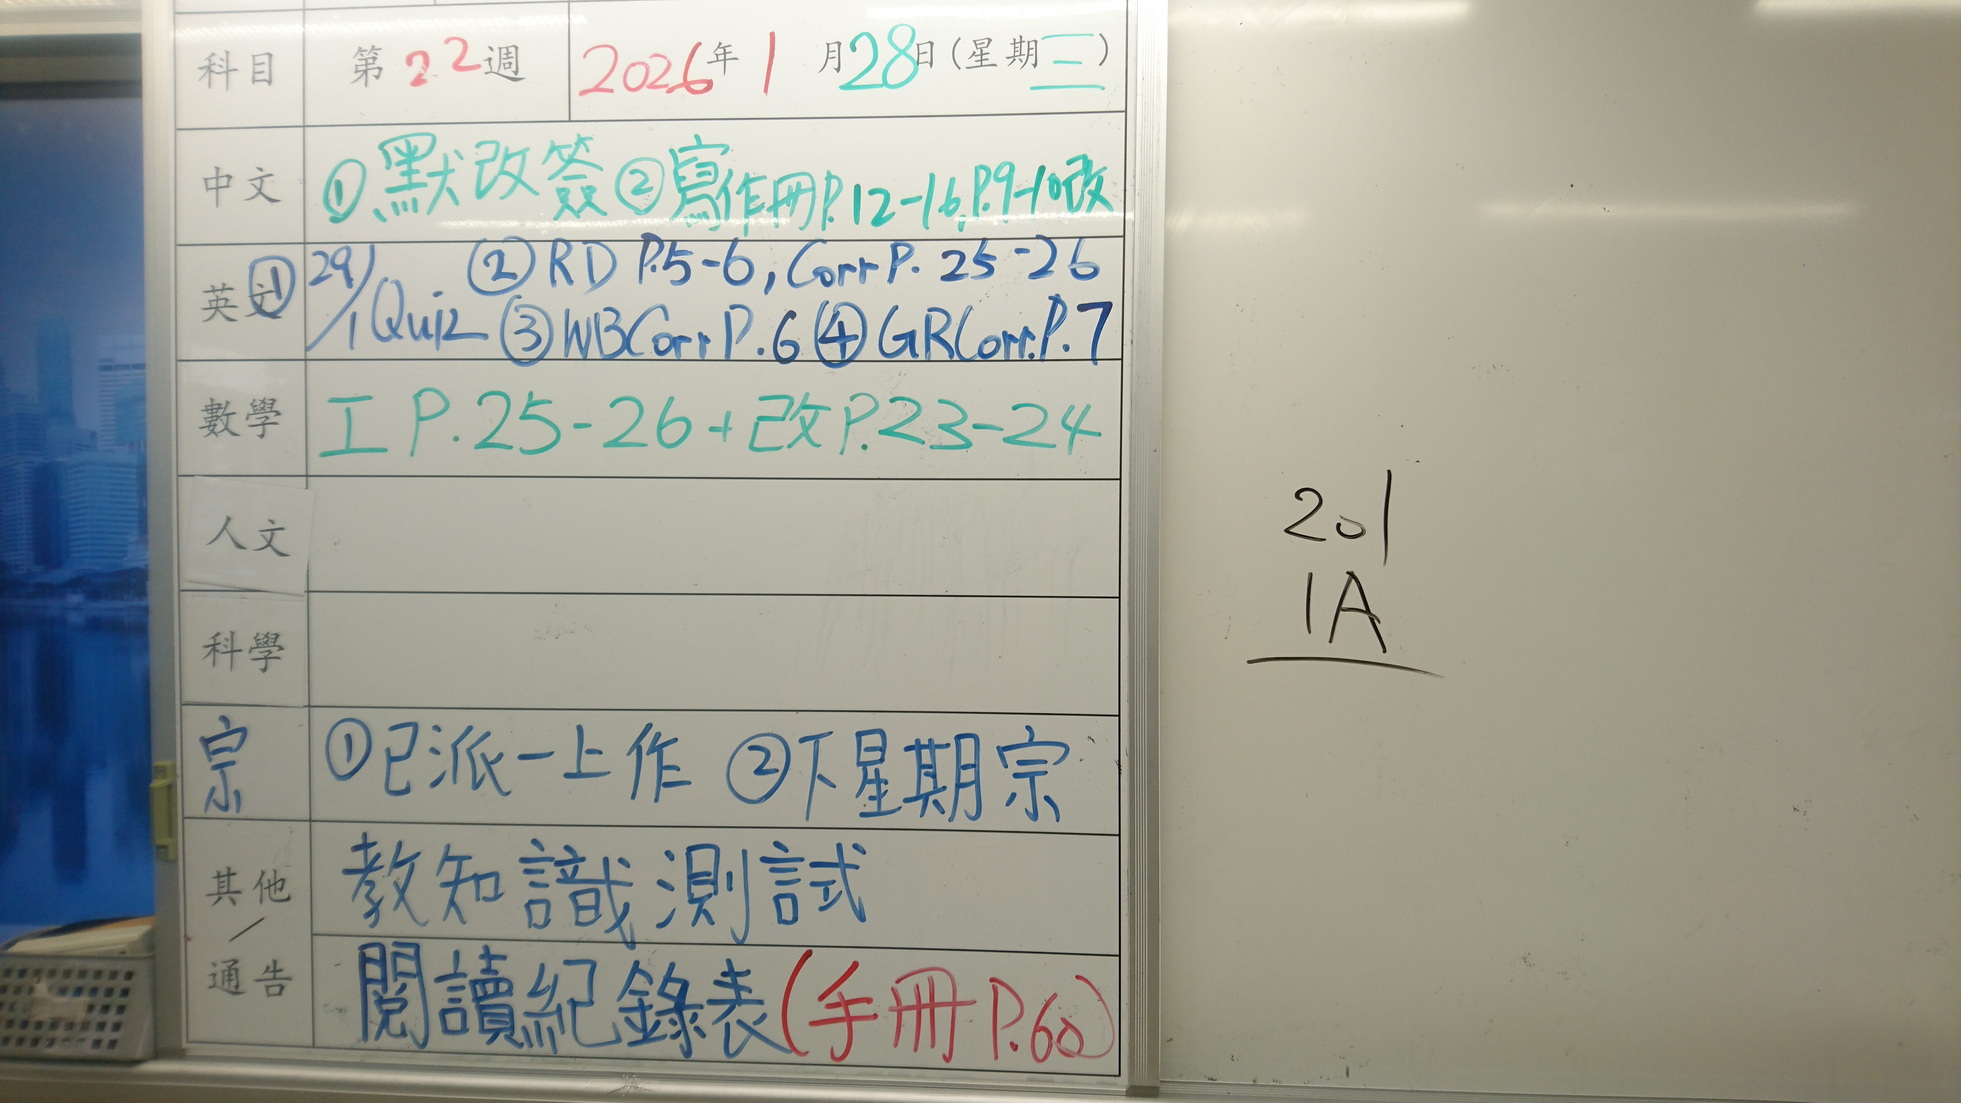 科目 第22週 2026年1月28日(星期三)
中文 ①默改簽②寫作冊P.12-16,P.9-10改
英文 ①29/1 Quiz ②RD P.5-6, Corr P. 25-26
③WBCorr P.6 ④GRCorr.P.7
數學 工P.25-26+改P.23-24
人文
科學
宗 ①已派一上作 ②下星期宗
教知識測試
其他/通告
閱讀紀錄表(手冊P.60)
201
1A